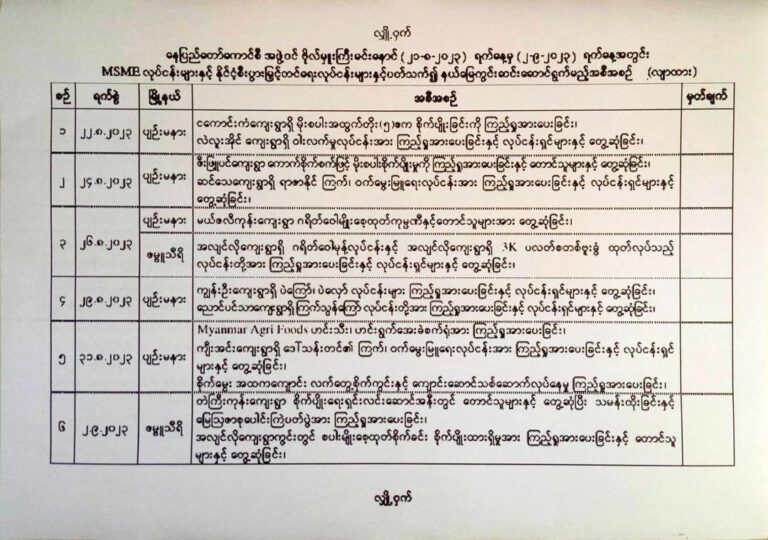 လျှို့ဝှက်
နေပြည်တော်ကောင်စီ အဖွဲ့ဝင် ဗိုလ်မှူးကြီးမင်းနောင် (၂၁-၈-၂၀၂၃) ရက်နေ့မှ (၂-၉-၂၀၂၃) ရက်နေ့အတွင်း
MSME လုပ်ငန်းများနှင့် နိုင်ငံ့စီးပွားမြှင့်တင်ရေးလုပ်ငန်းများနှင့်ပတ်သက်၍ နယ်မြေကွင်းဆင်းဆောင်ရွက်မည့်အစီအစဉ် (လျာထား)
စဉ် ရက်စွဲ မြို့နယ် အစီအစဉ် မှတ်ချက်
၁ ၂၂.၈.၂၀၂၃ ပျဉ်းမနား ငကောင်းကံကျေးရွာရှိ မိုးစပါးအထွက်တိုး(၅)ဧက စိုက်ပျိုးခြင်းကို ကြည့်ရှုအားပေးခြင်း၊
လဲလူးအိုင် ကျေးရွာရှိ ဝါးလက်မှုလုပ်ငန်းအား ကြည့်ရှုအားပေးခြင်းနှင့် လုပ်ငန်းရှင်များနှင့် တွေ့ဆုံခြင်း၊
၂ ၂၄.၈.၂၀၂၃ ပျဉ်းမနား ဇီးဖြူပင်ကျေးရွာ ကောက်စိုက်စက်ဖြင့် မိုးစပါးစိုက်ပျိုးမှုကို ကြည့်ရှုအားပေးခြင်းနှင့် တောင်သူများနှင့် တွေ့ဆုံခြင်း၊
ဆင်သေကျေးရွာရှိ ရာဇာနိုင် ကြက်၊ ဝက်မွေးမြူရေးလုပ်ငန်းအား ကြည့်ရှုအားပေးခြင်းနှင့် လုပ်ငန်းရှင်များနှင့်
တွေ့ဆုံခြင်း၊
၃ ၂၆.၈.၂၀၂၃ ပျဉ်းမနား မယ်ဇလီကုန်းကျေးရွာ ဂရိတ်ဝေါမျိုးစေ့ထုတ်ကုမ္ပဏီနှင့်တောင်သူများအား တွေ့ဆုံခြင်း၊
ဇမ္ဗူသီရိ အလျင်လိုကျေးရွာရှိ ဂရိတ်ဝေါမုန့်လုပ်ငန်းနှင့် အလျင်လိုကျေးရွာရှိ 3K ပလတ်စတစ်ဗူးခွံ ထုတ်လုပ်သည့်
လုပ်ငန်းတို့အား ကြည့်ရှုအားပေးခြင်းနှင့် လုပ်ငန်းရှင်များနှင့် တွေ့ဆုံခြင်း၊
၄ ၂၉.၈.၂၀၂၃ ပျဉ်းမနား ကျွန်းဦးကျေးရွာရှိ ပဲကြော်၊ ပဲလှော် လုပ်ငန်းများ ကြည့်ရှုအားပေးခြင်းနှင့် လုပ်ငန်းရှင်များနှင့် တွေ့ဆုံခြင်း၊
ညောင်ပင်သာကျေးရွာရှိ ကြက်သွန်ကြော် လုပ်ငန်းတို့အား ကြည့်ရှုအားပေးခြင်းနှင့် လုပ်ငန်းရှင်များနှင့် တွေ့ဆုံခြင်း၊
၅ ၃၁.၈.၂၀၂၃ ပျဉ်းမနား Myanmar Agri Foods ဟင်းသီး၊ ဟင်းရွက်အေးခဲစက်ရုံအား ကြည့်ရှုအားပေးခြင်း၊
ကျီးအင်းကျေးရွာရှိ ဒေါ်သန်းတင်၏ ကြက်၊ ဝက်မွေးမြူရေးလုပ်ငန်းအား ကြည့်ရှုအားပေးခြင်းနှင့် လုပ်ငန်းရှင်
များနှင့် တွေ့ဆုံခြင်း၊
စိုက်မွေး အထကကျောင်း လက်တွေ့စိုက်ကွင်းနှင့် ကျောင်းဆောင်သစ်ဆောက်လုပ်နေမှု ကြည့်ရှုအားပေးခြင်း၊
၆ ၂.၉.၂၀၂၃ ဇမ္ဗူသီရိ တဲကြီးကုန်းကျေးရွာ စိုက်ပျိုးရေးရှင်းလင်းဆောင်အနီးတွင် တောင်သူများနှင့် တွေ့ဆုံပြီး သမန်းထိုးခြင်းနှင့်
မြေဩဇာစုပေါင်းကြဲပက်ပွဲအား ကြည့်ရှုအားပေးခြင်း၊
အလျင်လိုကျေးရွာကွင်းတွင် စပါးမျိုးစေ့ထုတ်စိုက်ခင်း စိုက်ပျိုးထားရှိမှုအား ကြည့်ရှုအားပေးခြင်းနှင့် တောင်သူ
များနှင့် တွေ့ဆုံခြင်း၊
လျှို့ဝှက်